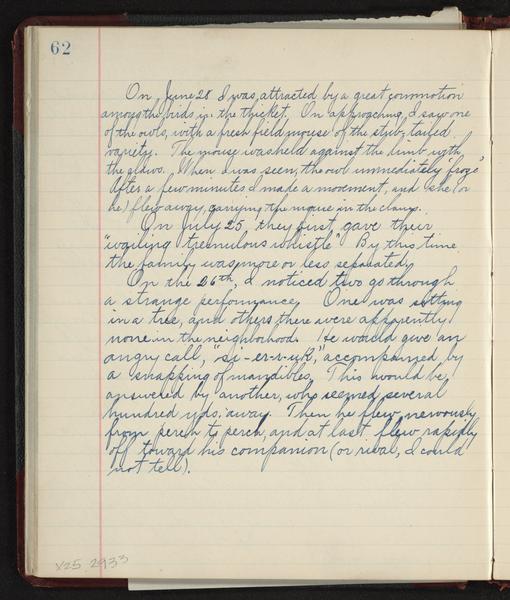 62
On June 28 I was attracted by a great commotion
among the birds in the thicket. On approaching, I saw one
of the owls, with a fresh field mouse of the stub-tailed
variety. The mouse was held against the limb with
the claws. When I was seen, the owl immediately "froze"
After a few minutes I made a movement, and she (or
he) flew away, carrying the mouse in the claws.
On July 25, they first gave their
"wailing tremulous whistle" By this time
the family was more or less separated,
On the 26th, I noticed two go through
a strange performance, One was sitting
in a tree, and others there were apparently
none in the neighborhood. He would give an
angry call, "si-er-r-uk", accompanied by
a snapping of mandibles, This would be
answered by another, who seemed several
hundred yds. away. Then he flew nervously
from perch to perch, and at last flew rapidly
off toward his companion (or rival, I could
not tell).
X25 2933